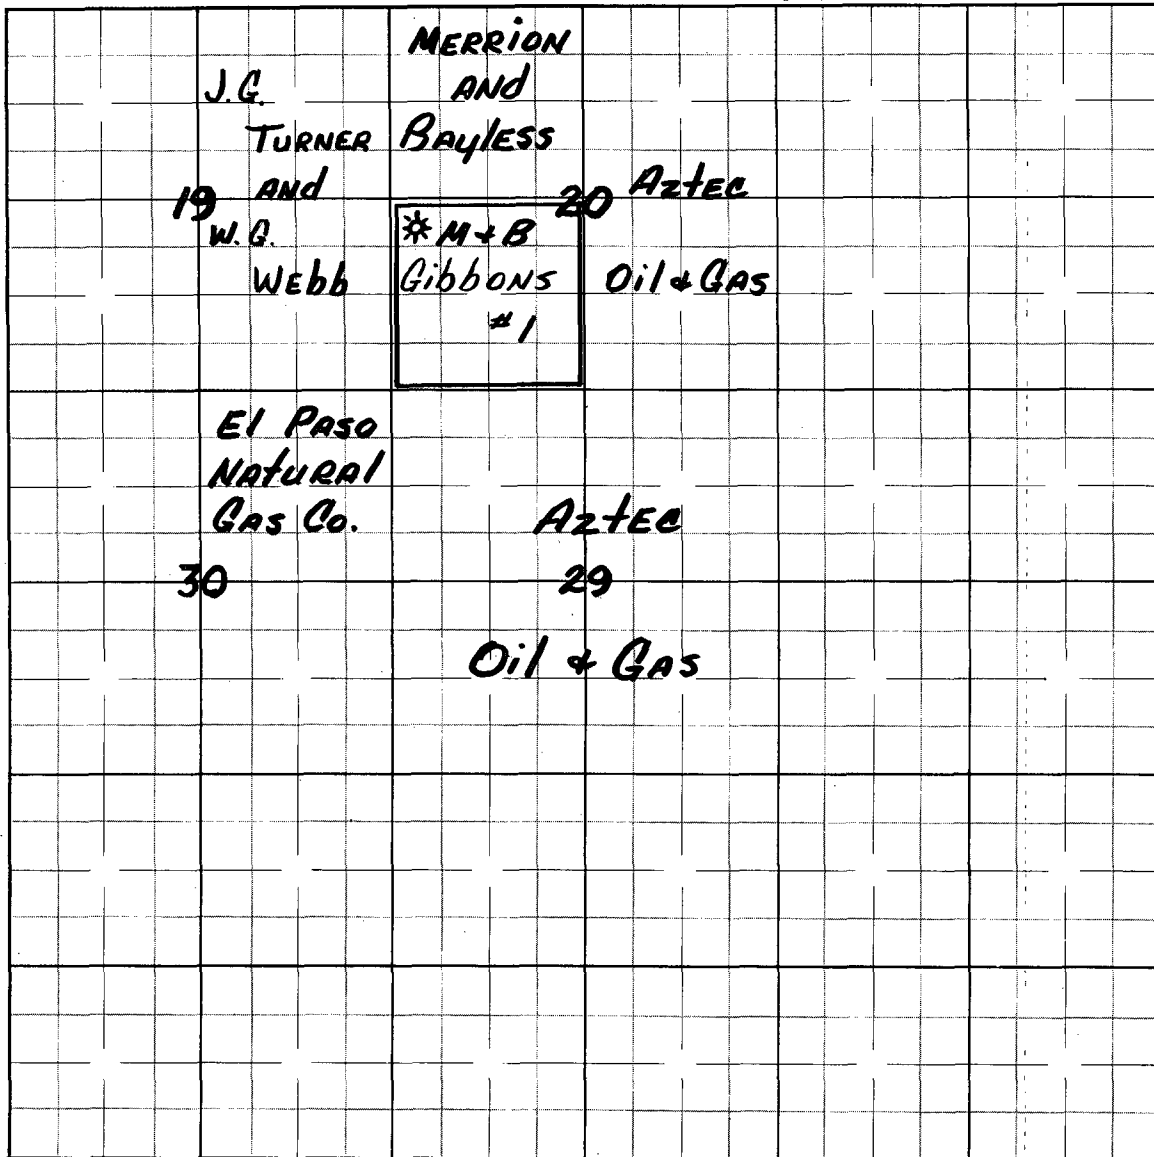 MERRION
AND
BAYLESS
J.G.
TURNER
AND
W.G.
WEbb
19
20
AztEC
Oil & GAS
☼ M + B
GibbONS
#1
El PASO
NAtURAl
GAS CO.
30
AztEC
29
Oil & GAS